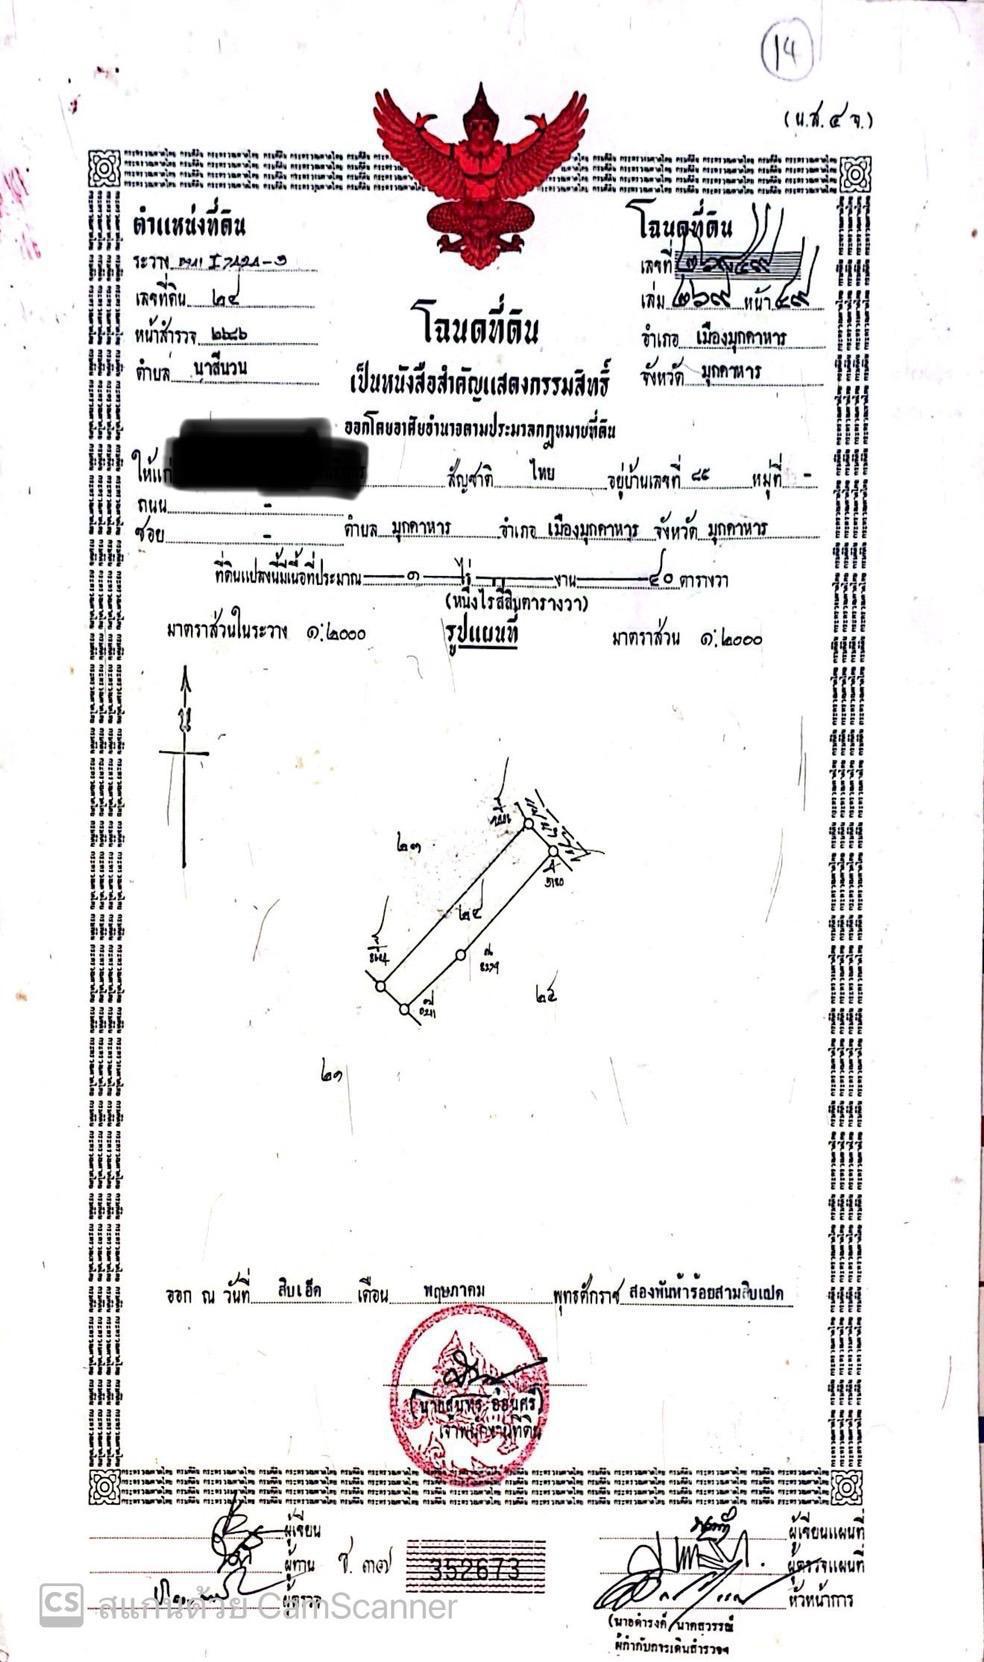 14
(น.ส. ๔ จ.)
ตำแหน่งที่ดิน
ระวาง
เลขที่ดิน ๒๔
หน้าสำรวจ ๒๖๔๖
ตำบล นาสีนวน
โฉนดที่ดิน
เลขที่ ๒๖๙๔๙
เล่ม ๒๖๙ หน้า ๔๙
อำเภอ เมืองมุกดาหาร
จังหวัด มุกดาหาร
โฉนดที่ดิน
เป็นหนังสือสำคัญแสดงกรรมสิทธิ์
ออกโดยอาศัยอำนาจตามประมวลกฎหมายที่ดิน
ให้แก่ สัญชาติ ไทย อยู่บ้านเลขที่ ๘๕ หมู่ที่ -
ถนน -
ซอย - ตำบล มุกดาหาร อำเภอ เมืองมุกดาหาร จังหวัด มุกดาหาร
ที่ดินแปลงนี้มีเนื้อที่ประมาณ ๑ ไร่ งาน ๔๐ ตารางวา
(หนึ่งไร่สี่สิบตารางวา)
มาตราส่วนในระวาง ๑:๒๐๐๐ รูปแผนที่ มาตราส่วน ๑:๒๐๐๐
น
๒๓
๒๔
๒๕
๒๑
ออก ณ วันที่ สิบเอ็ด เดือน พฤษภาคม พุทธศักราช สองพันห้าร้อยสามสิบแปด
เจ้าพนักงานที่ดิน
ผู้เขียน
ผู้ทาน
ผู้ตรวจ
ช. ๓๗ 352673
ผู้เขียนแผนที่
ผู้ตรวจแผนที่
หัวหน้าการ
ผู้กำกับการเดินสำรวจฯ
CS สแกนด้วย CamScanner